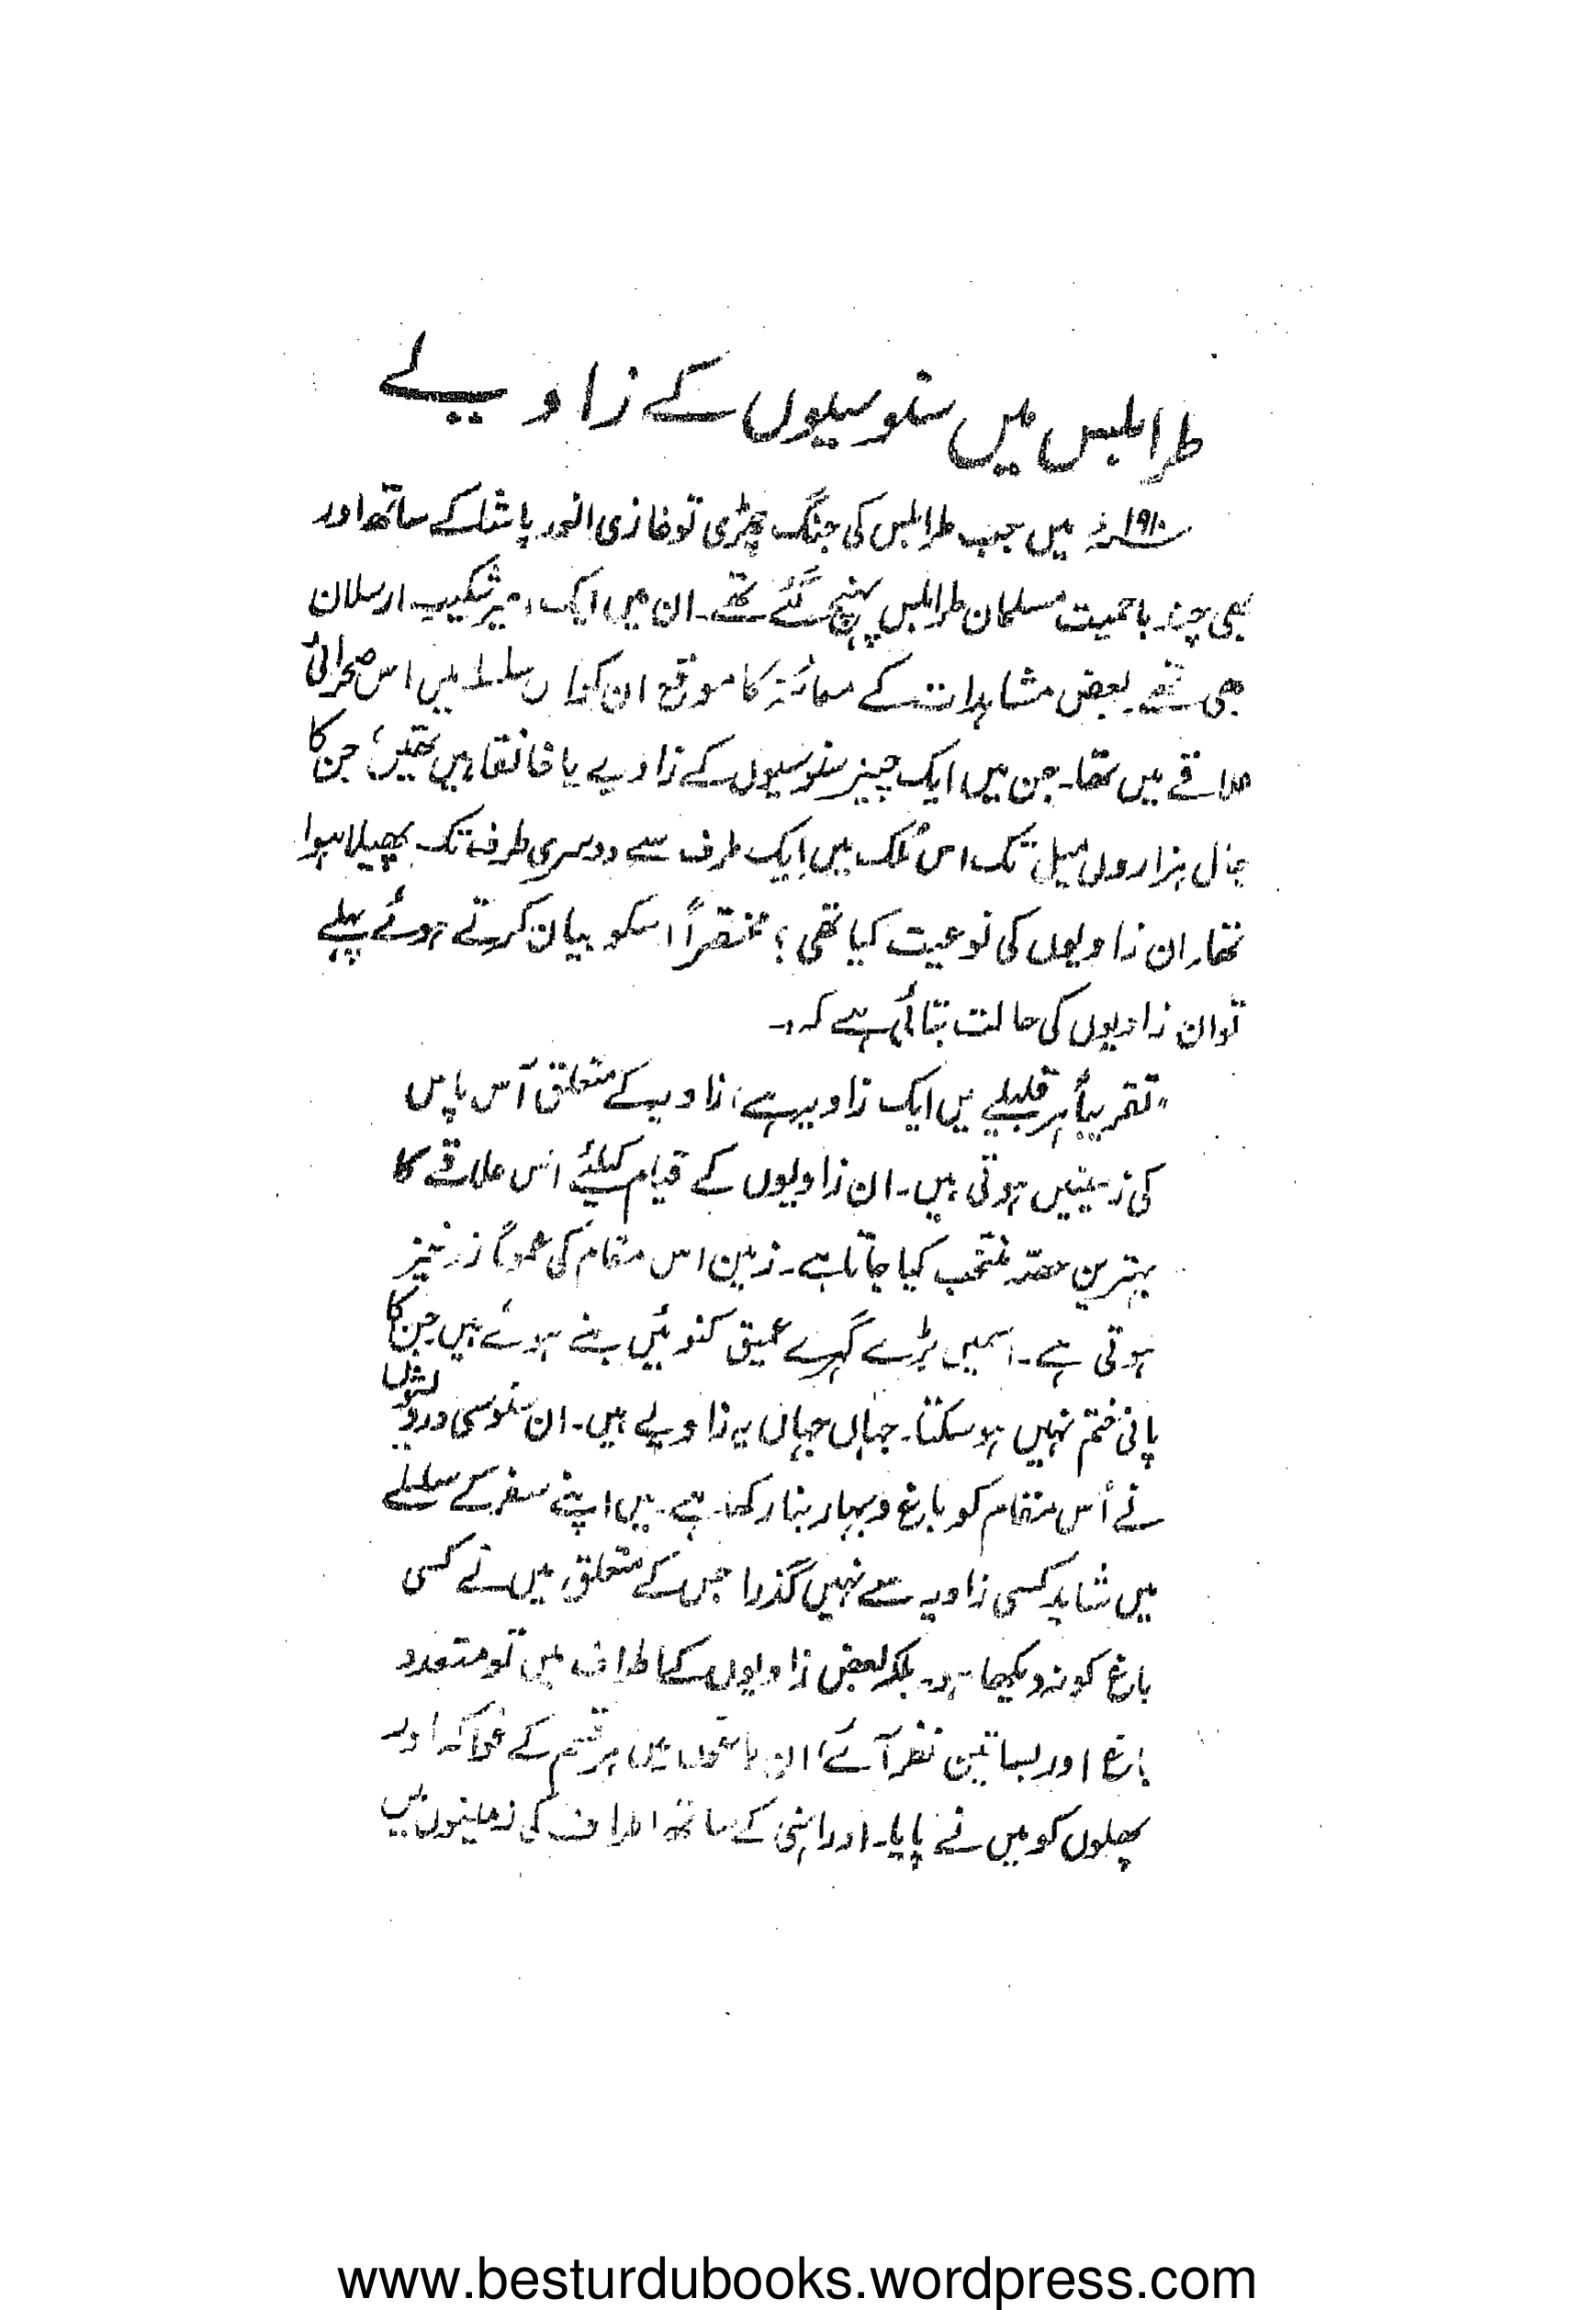 طرابلس میں سنوسیوں کے زاویے
۱۹۱۰ء میں جب طرابلس کی جنگ چھڑی تو غازی انور پاشا کے ساتھ اور
بھی چند باحمیت مسلمان طرابلس پہنچ گئے تھے۔ ان میں ایک امیر شکیب ارسلان
بھی تھے۔ بعض مشاہدات کے معائنہ کا موقع ان کو اس سلسلے میں اس صحرائی
علاقے میں تھا۔ جن میں ایک چیز سنوسیوں کے زاویے یا خانقاہیں تھیں، جن کا
جال ہزاروں میل تک اس ملک میں ایک طرف سے دوسری طرف تک پھیلا ہوا
تھا۔ ان زاویوں کی نوعیت کیا تھی؟ مختصراً اسکو بیان کرتے ہوئے پہلے
تو ان زاویوں کی حالت بتائی ہے کہ:۔
"تقریباً ہر قبیلے میں ایک زاویہ ہے، زاویہ کے متعلق آس پاس
کی زمینیں ہوتی ہیں۔ ان زاویوں کے قیام کیلئے اس علاقے کا
بہترین حصہ منتخب کیا جاتا ہے۔ زمین اس مقام کی عموماً زرخیز
ہوتی ہے۔ اسمیں بڑے گہرے عمیق کنوئیں بنے ہوئے ہیں جن کا
پانی ختم نہیں ہو سکتا۔ جہاں جہاں یہ زاویے ہیں۔ ان سنوسی درویشوں
نے اُس مقام کو باغ و بہار بنا رکھا ہے۔ میں اپنے سفر کے سلسلے
میں شاید کسی زاویہ سے نہیں گذرا جس کے متعلق میں نے کسی
باغ کو نہ دیکھا ہو۔ بلکہ بعض زاویوں کے اطراف میں تو متعدد
باغ اور بساتین نظر آئے، ان باغوں میں ہر قسم کے فواکہ اور
پھلوں کو میں نے پایا۔ اور انہی کے ساتھ اطراف کی زمینوں میں
www.besturdubooks.wordpress.com